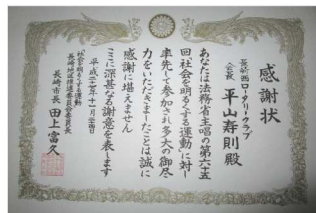 感謝状
長崎西ロータリークラブ
会長 平山寿則殿
あなたは法務省主唱の第六十五
回「社会を明るくする運動」に対し
率先して参加され多大の御尽
力をいただきましたことは誠に
感謝に堪えません
ここに深甚なる謝意を表します
平成二十七年十一月
"社会を明るくする運動"
長崎地区推進委員会委員長
長崎市長 田上富久